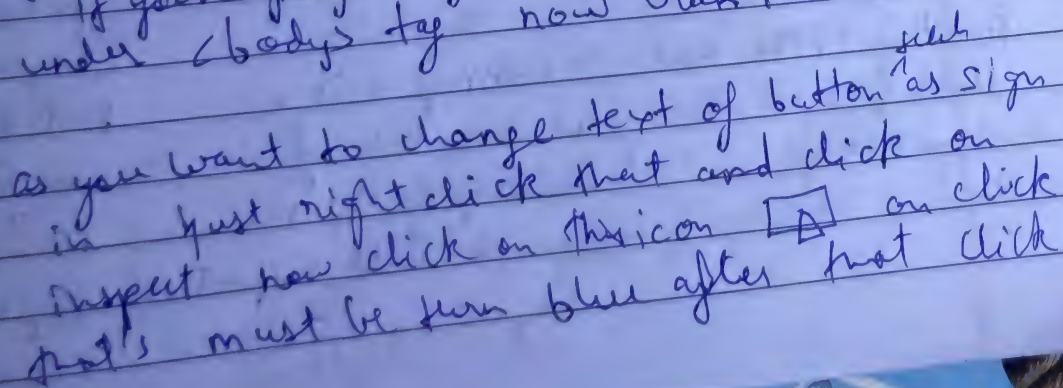 If you
under <body> tag now
such
as you want to change text of button ^ as sign
in just right click that and click on
inspect now click on this icon on click
that's must be turn blue after that click